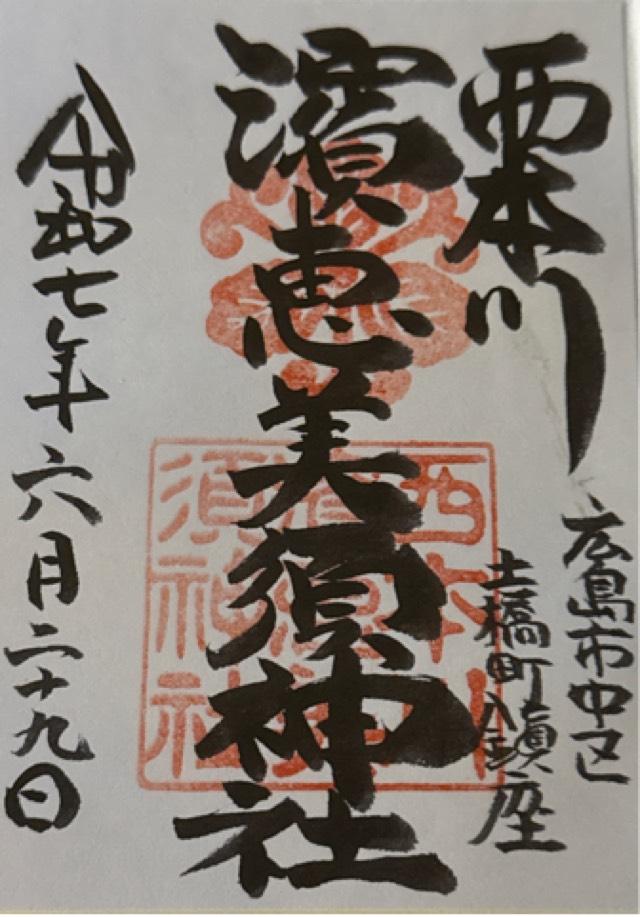 西本川
広島市中区
土橋町鎮座
濱恵美須神社
令和七年六月二十九日
西本川
須神社